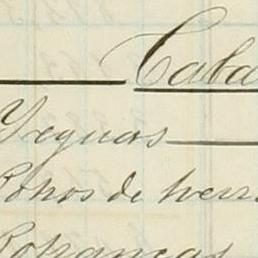 Caba
Yeguas
Potros de hierr
Potrancas